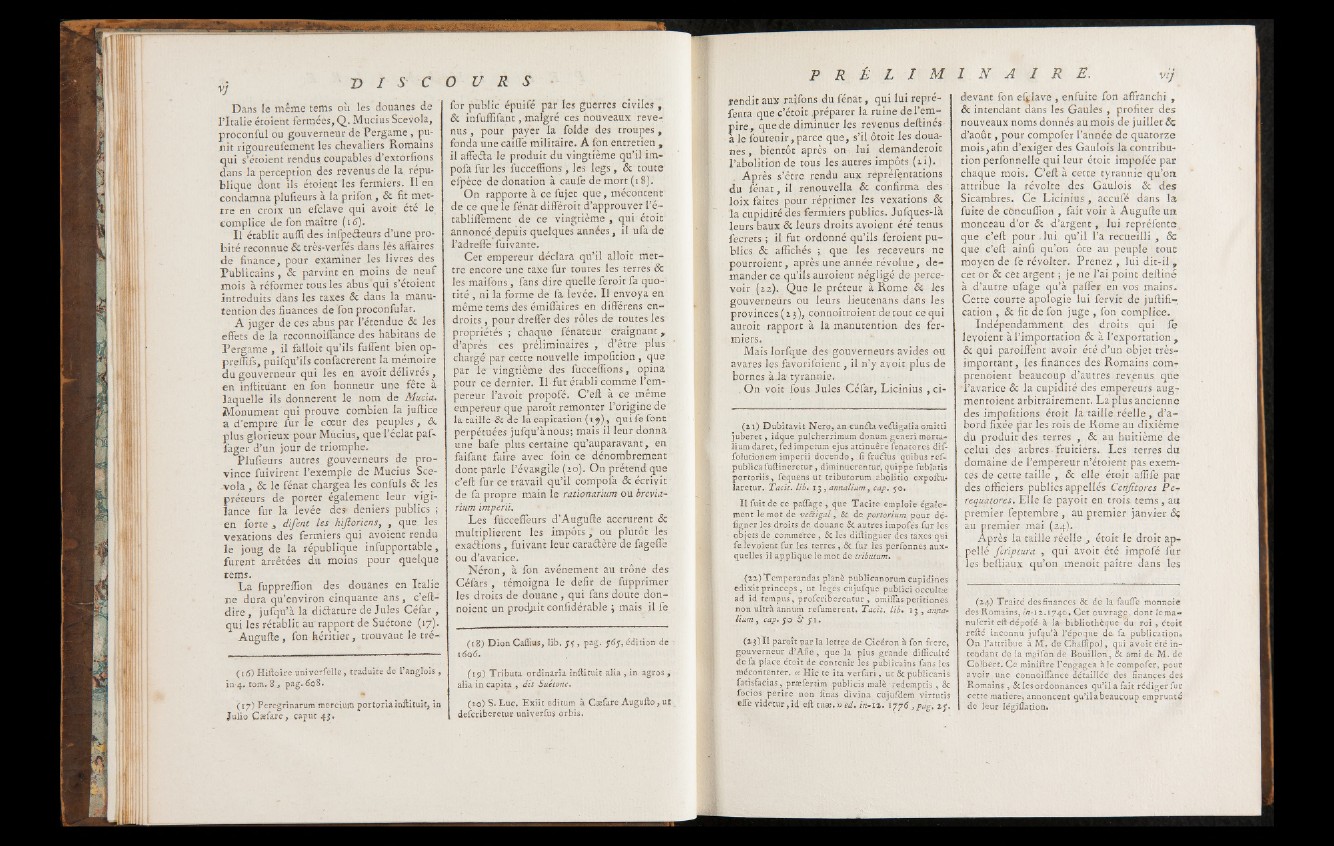 vj
DISCOURS
Dans le même tems où les douanes de
l'Italie étoient fermées, Q. Mucius Scevola,
proconſul ou gouverneur de Pergame, pu-
nit rigoureuſement les chevaliers Romains
qui s'étoient rendus coupables d'extorſions
dans la perception des revenus de la répu-
blique dont ils étoient les fermiers. Il en
condamna pluſieurs à la priſon, & fit met-
tre en croix un eſclave qui avoit été le
complice de ſon maître (16).
Il établit auſſi des inſpecteurs d'une pro-
bité reconnue & très-verſés dans les affaires
de finance, pour examiner les livres des
Publicains, & parvint en moins de neuf
mois à réformer tous les abus qui s'étoient
introduits dans les taxes & dans la manu-
tention des finances de ſon proconſulat.
A juger de ces abus par l'étendue & les
effets de la reconnoiſſance des habitans de
Pergame, il falloit qu'ils fuſſent bien op-
preſſifs, puiſqu'ils conſacrerent la mémoire
du gouverneur qui les en avoit délivrés,
en inſtituant en ſon honneur une fête à
laquelle ils donnerent le nom de Mucia.
Monument qui prouve combien la juſtice
a d'empire ſur le cœur des peuples, &
plus glorieux pour Mucius, que l'éclat paſ-
ſager d'un jour de triomphe.
Pluſieurs autres gouverneurs de pro-
vince ſuivirent l'exemple de Mucius Sce-
vola, & le ſénat chargea les conſuls & les
préteurs de porter également leur vigi-
lance ſur la levée des deniers publics ;
en ſorte, diſent les hiſtoriens, , que les
vexations des fermiers qui avoient rendu
le joug de la république inſupportable,
furent arrêtées du moins pour quelque
tems.
La ſuppreſſion des douanes en Italie
ne dura qu'environ cinquante ans, c'eſt-
dire, juſqu'à la dictature de Jules Céſar,
qui les rétablit au rapport de Suétone (17).
Auguſte, ſon héritier, trouvant le tré-
(16) Hiſtoire univerſelle, traduite de l'anglois,
in-4. tom. 8, pag. 608.
(17) Peregrinarum mercium portoria inſtituit, in
Julio Cæſare, caput 43.
ſor public épuiſé par les guerres civiles,
& inſuffiſant, malgré ces nouveaux reve-
nus, pour payer la ſolde des troupes,
fonda une caiſſe militaire. A ſon entretien,
il affecta le produit du vingtième qu'il im-
poſa ſur les ſucceſſions, les legs, & toute
eſpèce de donation à cauſe de mort (18).
On rapporte à ce ſujet que, mécontent
de ce que le ſénat différoit d'approuver l'é-
tabliſſement de ce vingtième, qui étoit
annoncé depuis quelques années, il uſa de
l'adreſſe ſuivante.
Cet empereur déclara qu'il alloit met-
tre encore une taxe ſur toutes les terres &
les maiſons, ſans dire quelle ſeroit ſa quo-
tité, ni la forme de ſa levée. Il envoya en
même tems des émiſſaires en différens en-
droits, pour dreſſer des rôles de toutes les
propriétés ; chaque ſénateur craignant,
d'après ces préliminaires, d'être plus
chargé par cette nouvelle impoſition, que
par le vingtième des ſucceſſions, opina
pour ce dernier. Il fut établi comme l'em-
pereur l'avoit propoſé. C'eſt à ce même
empereur que paroît remonter l'origine de
la taille & de la capitation (19), qui ſe ſont
perpétuées juſqu'à nous; mais il leur donna
une baſe plus certaine qu'auparavant, en
faiſant faire avec ſoin ce dénombrement
dont parle l'évangile (20). On prétend que
c'eſt ſur ce travail qu'il compoſa & écrivit
de ſa propre main le rationarium ou brevia-
rium imperii.
Les ſucceſſeurs d'Auguſte accrurent &
multiplierent les impôts, ou plutôt les
exactions, ſuivant leur caractère de ſageſſe
ou d'avarice.
Néron, à ſon avénement au trône des
Céſars, témoigna le deſir de ſupprimer
les droits de douane, qui ſans doute don-
noient un produit conſidérable ; mais il ſe
(18) Dion Caſſius, lib. 55, pag. 565, édition de
1606.
(19) Tributa ordinaria inſtituit alia, in agros,
alia in capita, dit Suétone.
(20) S. Luc. Exiit edictum à Cæſare Auguſto, ut
deſcriberetur univerſus orbis.
PRÉLIMINAIRE.
vij
rendit aux raiſons du ſénat, qui lui repré-
ſenta que c'étoit préparer la ruine de l'em-
pire, que de diminuer les revenus deſtinés
à le ſoutenir, parce que, s'il ôtoit les doua-
nes, bientôt après on lui demanderoit
l'abolition de tous les autres impôts (21).
Après s'être rendu aux repréſentations
du ſénat, il renouvella & confirma des
loix faites pour réprimer les vexations &
la cupidité des fermiers publics. Juſques-là
leurs baux & leurs droits avoient été tenus
ſecrets ; il fut ordonné qu'ils ſeroient pu-
blics & affichés ; que les receveurs ne
pourroient, après une année révolue, de-
mander ce qu'ils auroient négligé de perce-
voir (22). Que le préteur à Rome & les
gouverneurs ou leurs lieutenans dans les
provinces (23), connoîtroient de tout ce qui
auroit rapport à la manutention des fer-
miers.
Mais lorſque des gouverneurs avides ou
avares les favoriſoient, il n'y avoit plus de
bornes à la tyrannie.
On voit ſous Jules Céſar, Licinius, ci-
(21) Dubitavit Nero, an cuncta vectigalia omitti
juberet, idque pulcherrimum donum generi morta-
lium daret, ſed impetum ejus attinuêre ſenatores diſ-
ſolutionem imperii docendo, ſi fructus quibus reſ-
publica ſuſtineretur, diminuerentur, quippe ſublatis
portoriis, ſequens ut tributorum abolitio expoſtu-
laretur. Tacit. lib. 13, annalium, cap. 50.
Il ſuit de ce paſſage, que Tacite emploie égale-
ment le mot de vectigal, & de portorium pour dé-
ſigner les droits de douane & autres impoſés ſur les
objets de commerce, & les diſtinguer des taxes qui
ſe levoient ſur les terres, & ſur les perſonnes aux-
quelles il applique le mot de tributum.
(22) Temperandas planè publicanorum cupidines
edixit princeps, ut leges cujuſque publici occultæ
ad id tempus, proſcriberentur, omiſſas petitiones
non ultrà annum reſumerent. Tacit. lib. 13, anna-
lium, cap. 50 & 51.
(23) Il paroît par la lettre de Cicéron à ſon frere,
gouverneur d'Aſie, que la plus grande difficulté
de ſa place étoit de contenir les publicains ſans les
mécontenter. « Hic te ita verſari, ut & publicanis
ſatisfacias, præſertim publicis malè redemptis, &
ſocios perire non ſinas divina cujuſdem virtutis
eſſe videtur, id eſt tuæ. » éd. in-12. 1776, pag. 25.
devant ſon eſclave, enſuite ſon affranchi,
& intendant dans les Gaules, profiter des
nouveaux noms donnés au mois de juillet &
d'août, pour compoſer l'année de quatorze
mois, afin d'exiger des Gaulois la contribu-
tion perſonnelle qui leur étoit impoſée par
chaque mois. C'eſt à cette tyrannie qu'on
attribue la révolte des Gaulois & des
Sicambres. Ce Licinius, accuſé dans la
ſuite de concuſſion, fait voir à Auguſte un
monceau d'or & d'argent, lui repréſente
que c'eſt pour lui qu'il l'a recueilli, &
que c'eſt ainſi qu'on ôte au peuple tout
moyen de ſe révolter. Prenez, lui dit-il,
cet or & cet argent ; je ne l'ai point deſtiné
à d'autre uſage qu'à paſſer en vos mains.
Cette courte apologie lui ſervit de juſtifi-
cation, & fit de ſon juge, ſon complice.
Indépendamment des droits qui ſe
levoient à l'importation & à l'exportation,
& qui paroiſſent avoir été d'un objet très-
important, les finances des Romains com-
prenoient beaucoup d'autres revenus que
l'avarice & la cupidité des empereurs aug-
mentoient arbitrairement. La plus ancienne
des impoſitions étoit la taille réelle, d'a-
bord fixée par les rois de Rome au dixième
du produit des terres, & au huitième de
celui des arbres fruitiers. Les terres du
domaine de l'empereur n'étoient pas exem-
tes de cette taille, & elle étoit aſſiſe par
des officiers publics appellés Cenſitores Pe-
requatores. Elle ſe payoit en trois tems, au
premier ſeptembre, au premier janvier &
au premier mai (24).
Après la taille réelle, étoit le droit ap-
pellé ſcriptura, qui avoit été impoſé ſur
les beſtiaux qu'on menoit paître dans les
(24) Traité des finances & de la fauſſe monnoie
des Romains, in-12. 1740. Cet ouvrage, dont le ma-
nuſcrit eſt dépoſé à la bibliothèque du roi, étoit
reſté inconnu juſqu'à l'époque de ſa publication.
On l'attribue à M. de Chaſſipol, qui avoit été in-
tendant de la maiſon de Bouillon, & ami de M. de
Colbert. Ce miniſtre l'engagea à le compoſer, pour
avoir une connoiſſance détaillée des finances des
Romains, & les ordonnances qu'il a fait rédiger ſur
cette matiere, annoncent qu'il a beaucoup emprunté
de leur légiſlation.